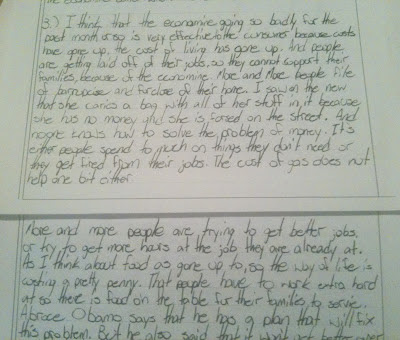 3.) I think that the economie going so badly for the
past month or so is very effective to the consumer because costs
have gone up, the cost of living has gone up. And people
are getting laid off of their jobs, so they cannot support their
families, because of the economine. More and More people file
of and of their home. I saw on the new
that she caries a bag with all of her stuff in it because
she has no money and she is forsed on the street. And
noone knows how to solve the problem of money. It's
either people spend to much on things they don't need or
they get fired from their jobs. The cost of gas does not
help one bit either.
More and more people are trying to get better jobs.
or try to get more hours at the job they are already at.
As I think about food as gone up to, so the way of life is
costing a pretty penny. That people have to work extra hard
at so there is food on the table for their families to servive.
Obama says that he has a plan that will fix
this problem. But he also said that it won't get better